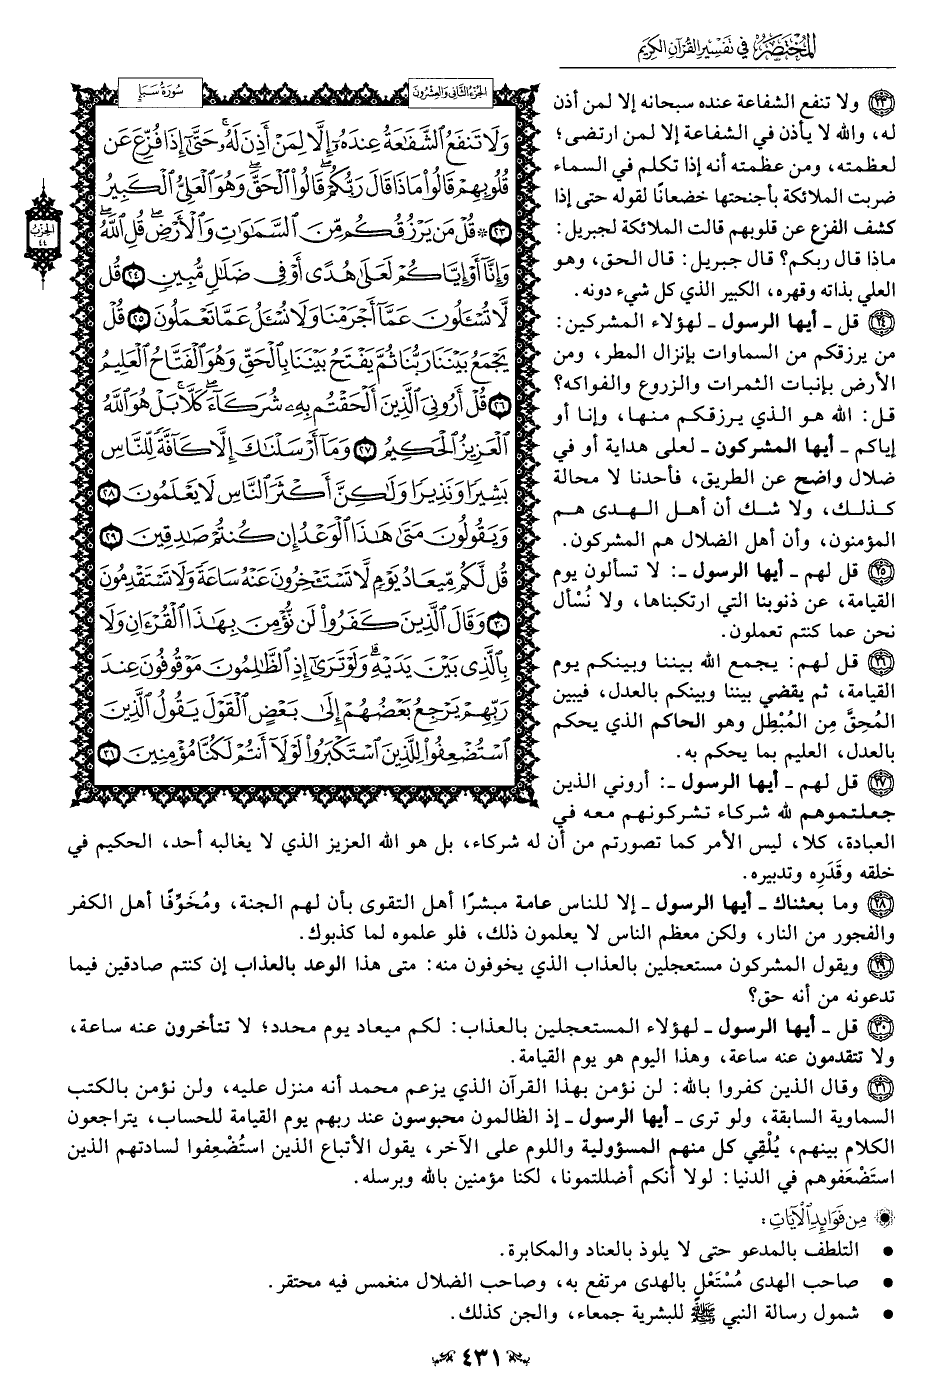 المختصر في تفسير القرآن الكريم
الجزء الثاني والعشرون
سورة سبإ
الحزب ٤٤
وَلَا تَنفَعُ ٱلشَّفَٰعَةُ عِندَهُۥٓ إِلَّا لِمَنْ أَذِنَ لَهُۥۚ حَتَّىٰٓ إِذَا فُزِّعَ عَن
قُلُوبِهِمْ قَالُوا۟ مَاذَا قَالَ رَبُّكُمْۖ قَالُوا۟ ٱلْحَقَّۖ وَهُوَ ٱلْعَلِىُّ ٱلْكَبِيرُ
٢٣ ۞ قُلْ مَن يَرْزُقُكُم مِّنَ ٱلسَّمَٰوَٰتِ وَٱلْأَرْضِۖ قُلِ ٱللَّهُۖ
وَإِنَّآ أَوْ إِيَّاكُمْ لَعَلَىٰ هُدًى أَوْ فِى ضَلَٰلٍ مُّبِينٍ ٢٤ قُل
لَّا تُسْـَٔلُونَ عَمَّآ أَجْرَمْنَا وَلَا نُسْـَٔلُ عَمَّا تَعْمَلُونَ ٢٥ قُلْ
يَجْمَعُ بَيْنَنَا رَبُّنَا ثُمَّ يَفْتَحُ بَيْنَنَا بِٱلْحَقِّ وَهُوَ ٱلْفَتَّاحُ ٱلْعَلِيمُ
٢٦ قُلْ أَرُونِىَ ٱلَّذِينَ أَلْحَقْتُم بِهِۦ شُرَكَآءَۖ كَلَّاۚ بَلْ هُوَ ٱللَّهُ
ٱلْعَزِيزُ ٱلْحَكِيمُ ٢٧ وَمَآ أَرْسَلْنَٰكَ إِلَّا كَآفَّةً لِّلنَّاسِ
بَشِيرًا وَنَذِيرًا وَلَٰكِنَّ أَكْثَرَ ٱلنَّاسِ لَا يَعْلَمُونَ ٢٨
وَيَقُولُونَ مَتَىٰ هَٰذَا ٱلْوَعْدُ إِن كُنتُمْ صَٰدِقِينَ ٢٩
قُل لَّكُم مِّيعَادُ يَوْمٍ لَّا تَسْتَـْٔخِرُونَ عَنْهُ سَاعَةً وَلَا تَسْتَقْدِمُونَ
٣٠ وَقَالَ ٱلَّذِينَ كَفَرُوا۟ لَن نُّؤْمِنَ بِهَٰذَا ٱلْقُرْءَانِ وَلَا
بِٱلَّذِى بَيْنَ يَدَيْهِۗ وَلَوْ تَرَىٰٓ إِذِ ٱلظَّٰلِمُونَ مَوْقُوفُونَ عِندَ
رَبِّهِمْ يَرْجِعُ بَعْضُهُمْ إِلَىٰ بَعْضٍ ٱلْقَوْلَ يَقُولُ ٱلَّذِينَ
ٱسْتُضْعِفُوا۟ لِلَّذِينَ ٱسْتَكْبَرُوا۟ لَوْلَآ أَنتُمْ لَكُنَّا مُؤْمِنِينَ ٣١
٢٣ ولا تنفع الشفاعة عنده سبحانه إلا لمن أذن
له، والله لا يأذن في الشفاعة إلا لمن ارتضى؛
لعظمته، ومن عظمته أنه إذا تكلم في السماء
ضربت الملائكة بأجنحتها خضعانًا لقوله حتى إذا
كشف الفزع عن قلوبهم قالت الملائكة لجبريل:
ماذا قال ربكم؟ قال جبريل: قال الحق، وهو
العلي بذاته وقهره، الكبير الذي كل شيء دونه.
٢٤ قل ـ أيها الرسول ـ لهؤلاء المشركين:
من يرزقكم من السماوات بإنزال المطر، ومن
الأرض بإنبات الثمرات والزروع والفواكه؟
قل: الله هو الذي يرزقكم منها، وإنا أو
إياكم ـ أيها المشركون ـ لعلى هداية أو في
ضلال واضح عن الطريق، فأحدنا لا محالة
كذلك، ولا شك أن أهل الهدى هم
المؤمنون، وأن أهل الضلال هم المشركون.
٢٥ قل لهم ـ أيها الرسول ـ: لا تسألون يوم
القيامة، عن ذنوبنا التي ارتكبناها، ولا نُسْأل
نحن عما كنتم تعملون.
٢٦ قل لهم: يجمع الله بيننا وبينكم يوم
القيامة، ثم يقضي بيننا وبينكم بالعدل، فيبين
المُحِقَّ مِن المُبْطِل وهو الحاكم الذي يحكم
بالعدل، العليم بما يحكم به.
٢٧ قل لهم ـ أيها الرسول ـ: أروني الذين
جعلتموهم لله شركاء تشركونهم معه في
العبادة، كلا، ليس الأمر كما تصورتم من أن له شركاء، بل هو الله العزيز الذي لا يغالبه أحد، الحكيم في
خلقه وقَدَرِه وتدبيره.
٢٨ وما بعثناك ـ أيها الرسول ـ إلا للناس عامة مبشرًا أهل التقوى بأن لهم الجنة، ومُخَوِّفًا أهل الكفر
والفجور من النار، ولكن معظم الناس لا يعلمون ذلك، فلو علموه لما كذبوك.
٢٩ ويقول المشركون مستعجلين بالعذاب الذي يخوفون منه: متى هذا الوعد بالعذاب إن كنتم صادقين فيما
تدعونه من أنه حق؟
٣٠ قل ـ أيها الرسول ـ لهؤلاء المستعجلين بالعذاب: لكم ميعاد يوم محدد؛ لا تتأخرون عنه ساعة،
ولا تتقدمون عنه ساعة، وهذا اليوم هو يوم القيامة.
٣١ وقال الذين كفروا بالله: لن نؤمن بهذا القرآن الذي يزعم محمد أنه منزل عليه، ولن نؤمن بالكتب
السماوية السابقة، ولو ترى ـ أيها الرسول ـ إذ الظالمون محبوسون عند ربهم يوم القيامة للحساب، يتراجعون
الكلام بينهم، يُلْقِي كل منهم المسؤولية واللوم على الآخر، يقول الأتباع الذين استُضْعِفوا لسادتهم الذين
استَضْعَفوهم في الدنيا: لولا أنكم أضللتمونا، لكنا مؤمنين بالله وبرسله.
من فوائد الآيات:
● التلطف بالمدعو حتى لا يلوذ بالعناد والمكابرة.
● صاحب الهدى مُسْتَعْلٍ بالهدى مرتفع به، وصاحب الضلال منغمس فيه محتقر.
● شمول رسالة النبي ﷺ للبشرية جمعاء، والجن كذلك.
٤٣١